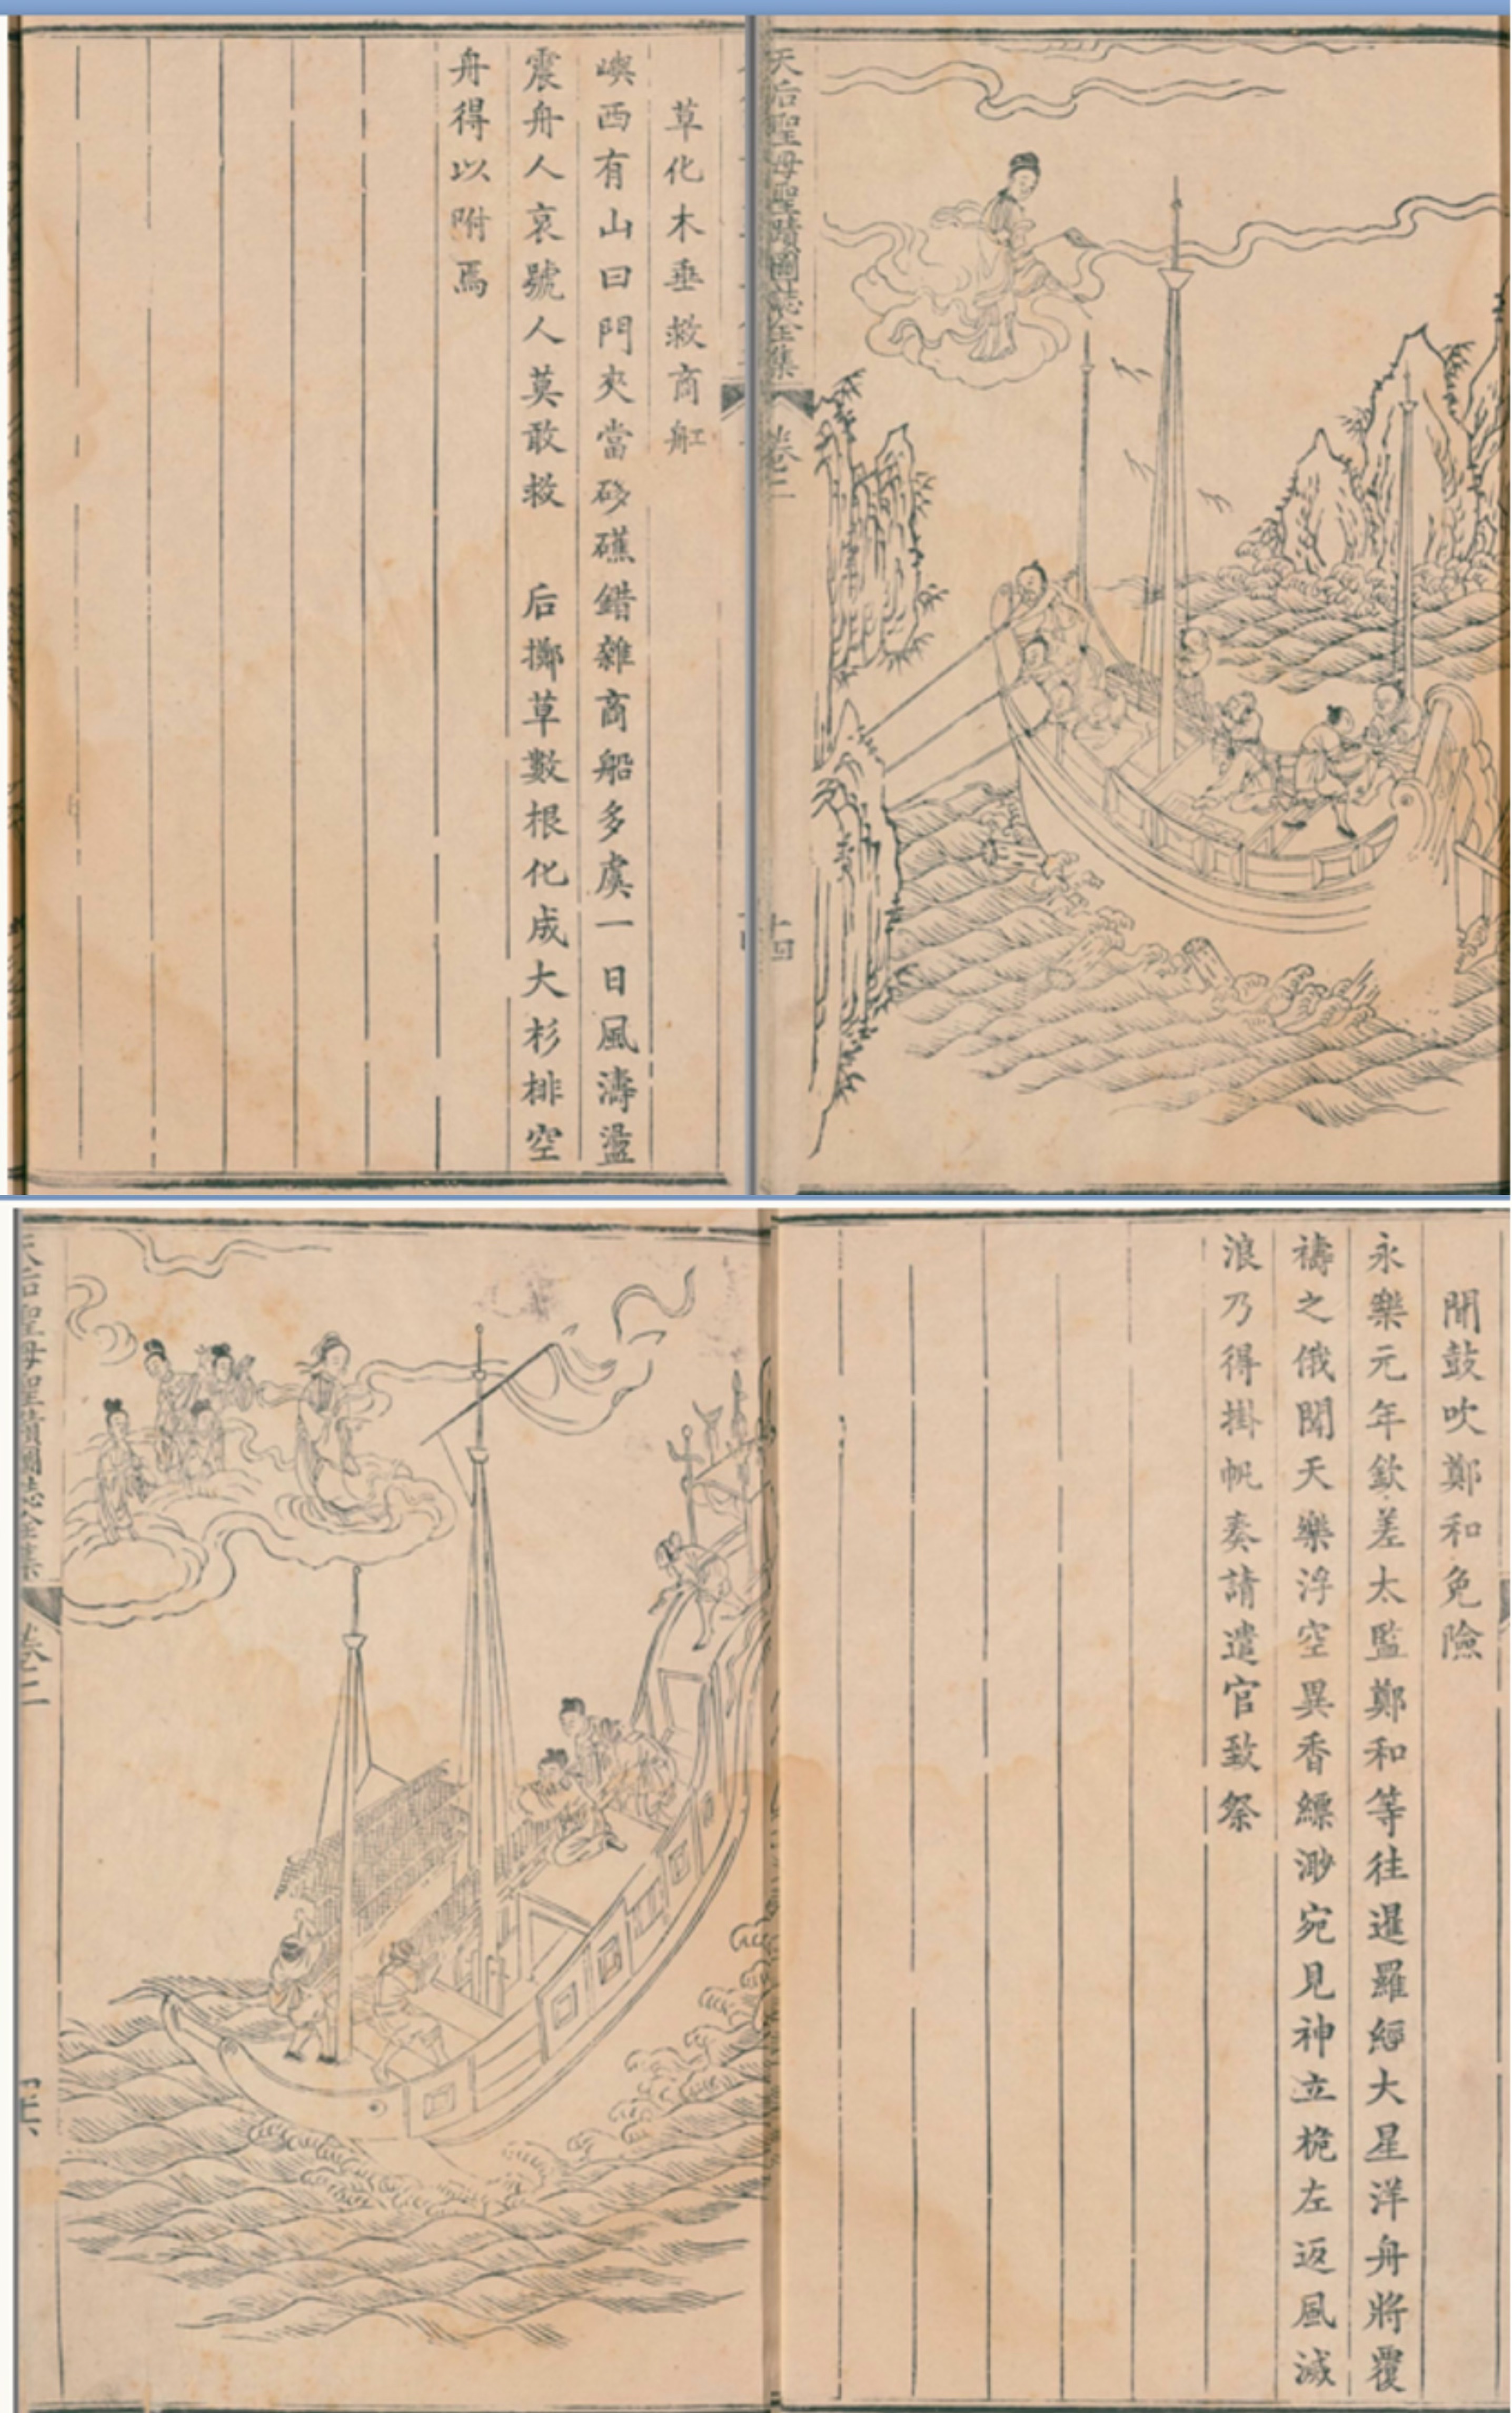 天后聖母聖蹟圖誌全集
卷二
十四
草化木垂救商舡
嶼西有山曰門夾當礁錯雜商船多虞一日風濤盪
震舟人哀號人莫敢救 后擲草數根化成大杉排空
舟得以附焉
聞鼓吹鄭和免險
永樂元年欽差太監鄭和等往暹羅經大星洋舟將覆
禱之俄聞天樂浮空異香縹渺宛見神立桅左返風滅
浪乃得掛帆奏請遣官致祭
天后聖母聖蹟圖誌全集
卷二